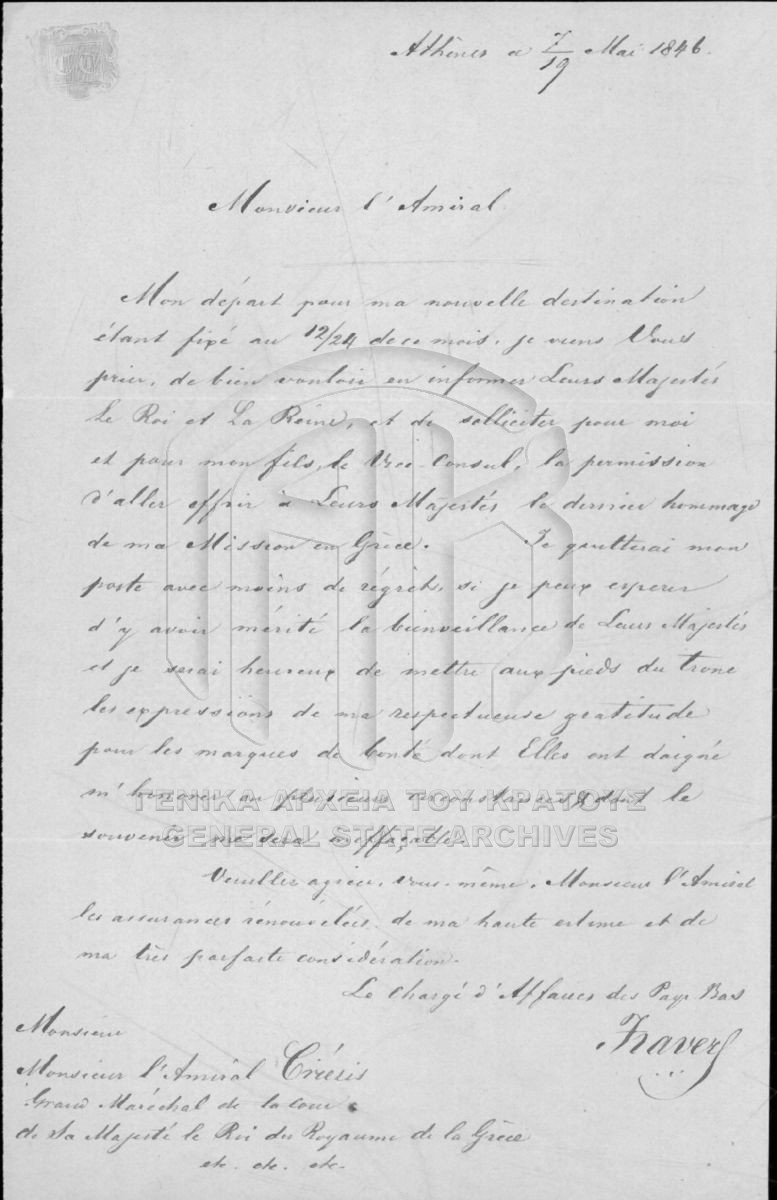 Athènes a 7/19 Mai 1846.
Monsieur l'Amiral
Mon départ pour ma nouvelle destination
étant fixé au 12/24 de ce mois, je viens Vous
prier, de bien vouloir en informer Leurs Majestés
Le Roi et La Reine, et de solliciter pour moi
et pour mon fils, le Vice-Consul, la permission
d'aller offrir à Leurs Majestés le dernier hommage
de ma Mission en Grèce. Je quitterai mon
poste avec moins de régrèt, si je peux esperer
d'y avoir mérité la bienveillance de Leurs Majestés
et je serai heureux de mettre aux pieds du trone
les expressions de ma respectueuse gratitude
pour les marques de bonté dont Elles ont daigné
m'honorer en plusieurs circonstances & dont le
souvenir me sera ineffaçable.
ΓΕΝΙΚΑ ΑΡΧΕΙΑ ΤΟΥ ΚΡΑΤΟΥΣ
GENERAL STATE ARCHIVES
Veuillez agréer, vous-même, Monsieur l'Amiral
les assurances rénouvélées de ma haute estime et de
ma très parfaite considération.
Le Chargé d'Affaires des Pays Bas
Travers
Monsieur
Monsieur l'Amiral Criésis
Grand Maréchal de la cour
de Sa Majesté le Roi du Royaume de la Grèce
etc. etc. etc.